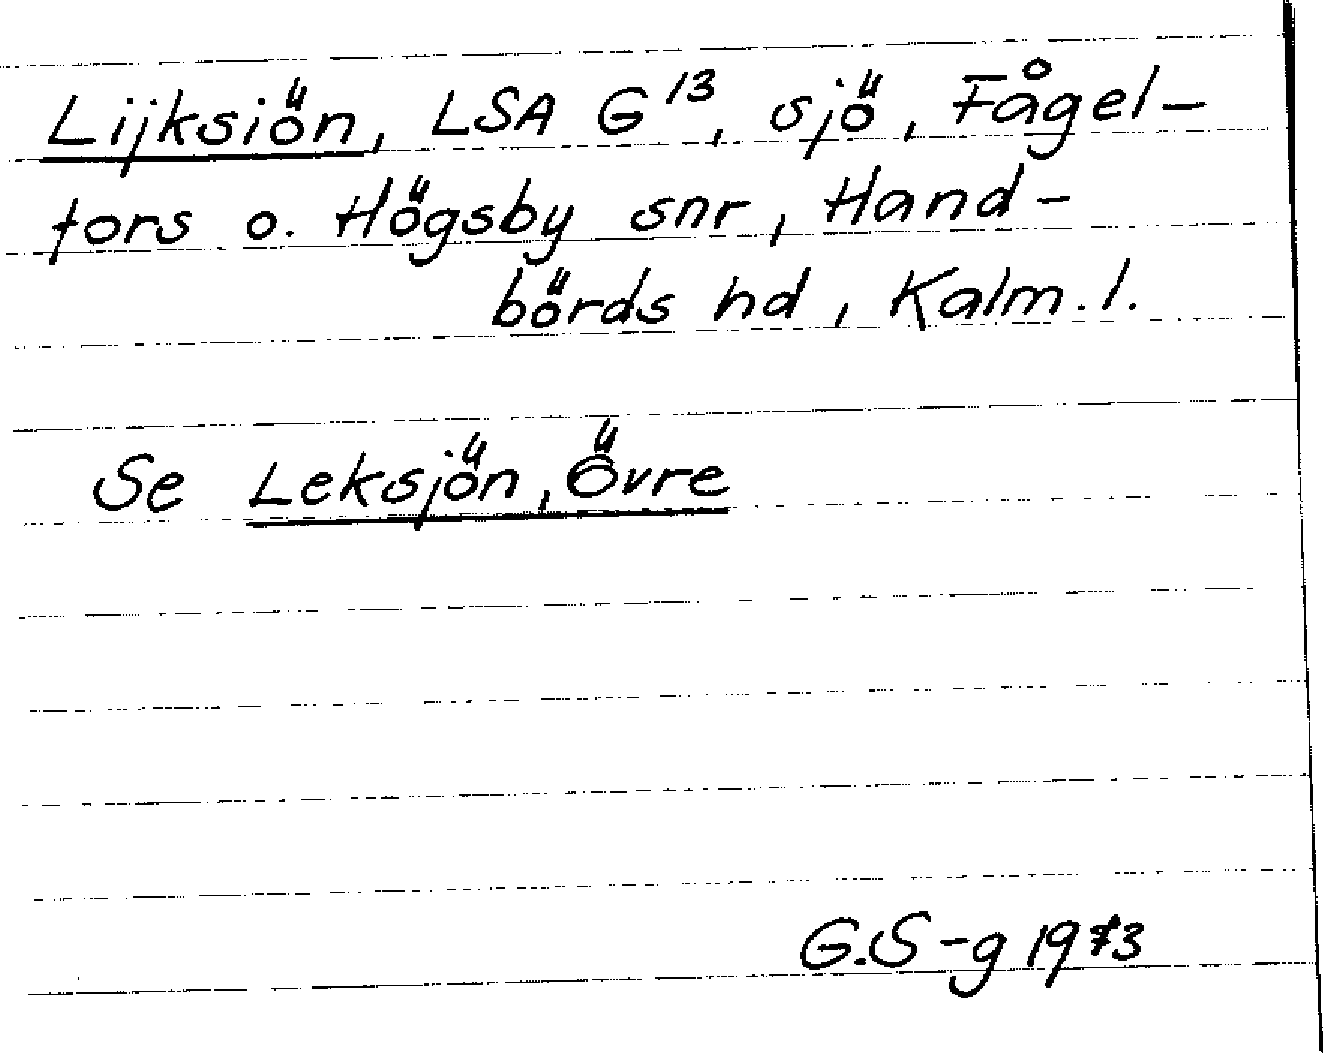 Lijksiön, LSA G¹³, sjö, Fågel-
fors o. Högsby snr, Hand-
börds hd, Kalm. l.
Se Leksjön, Övre
G.S-g 1973